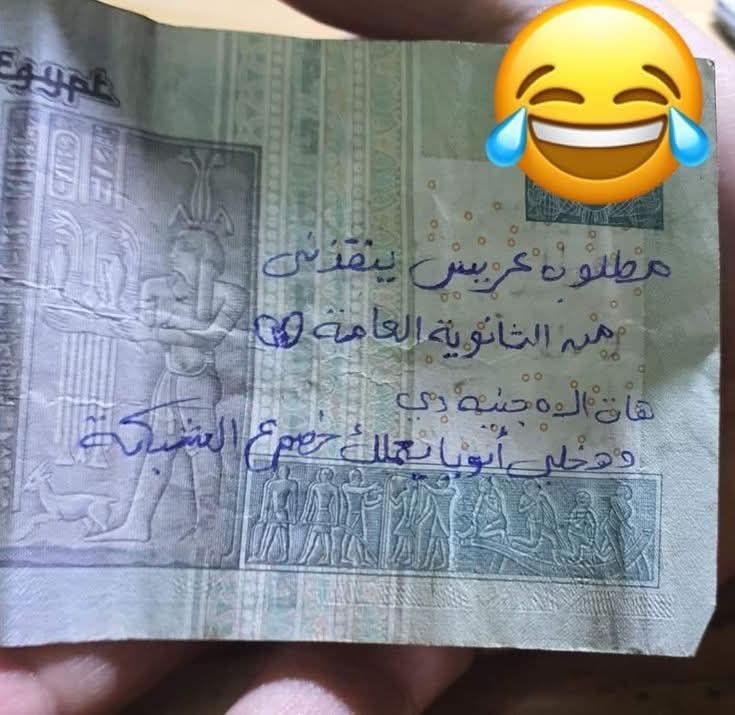 Egypt
مطلوب عريس ينقذنى
من الثانوية العامة
هات الـ ٥ جنيه دي
وخلي أبويا يعملك خصم ع الشبكة